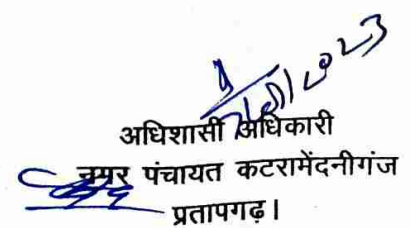 अधिशासी अधिकारी
नगर पंचायत कटरामेंदनीगंज
प्रतापगढ़।